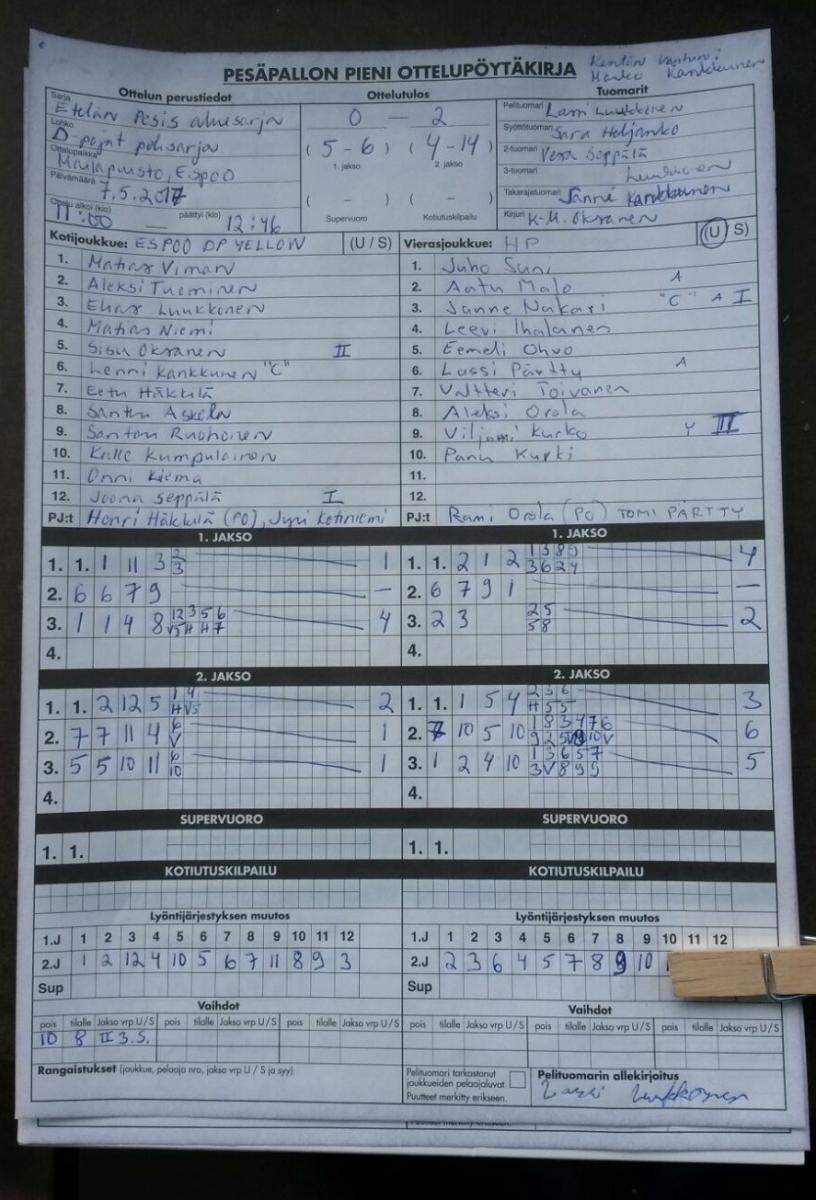 PESÄPALLON PIENI OTTELUPÖYTÄKIRJA
Kentän vanhin:
Marko Kankkunen
Ottelun perustiedot
Ottelutulos
Tuomarit
Sarja Etelän Pesis aluesarja
Lohko D-pojat pohsarja
Ottelupaikka Maulapuisto, Espoo
Päivämäärä 7.5.2017
Ottelu alkoi (klo) 11:00 — päättyi (klo) 12:46
0 — 2
(5-6) (4-14)
1. jakso 2. jakso
( - ) ( - )
Supervuoro Kotiutuskilpailu
Pelituomari Lassi Luukkonen
Syöttötuomari Sara Heljanko
2-tuomari Vesa Seppälä
3-tuomari Luukkonen
Takarajatuomari Sanni Kankkunen
Kirjuri K-M. Oksanen
Kotijoukkue: ESPOO DP YELLOW (U / S)
1. Matias Viman
2. Aleksi Tueminen
3. Elias Luukkonen
4. Matias Niemi
5. Sisu Oksanen II
6. Lenni Kankkunen "C"
7. Eetu Häkkilä
8. Santtu Askola
9. Santtu Ruohonen
10. Kalle Kumpulainen
11. Onni Kiema
12. Joona Seppälä I
PJ:t Henri Häkkilä (PO), Jyri Kotiniemi
Vierasjoukkue: HP (U / S)
1. Juho Suni
2. Aatu Malo A
3. Janne Nakari "C" A I
4. Leevi Ihalainen
5. Eemeli Ohvo
6. Lassi Pärtty A
7. Valtteri Toivanen
8. Aleksi Orola
9. Viljami Kurko Y II
10. Panu Kurki
11.
12.
PJ:t Rami Orola (PO) TOMI PÄRTTY
1. JAKSO
1. 1. 1 11 3 2 1
3
2. 6 6 7 9 —
3. 1 1 4 8 12 3 5 6 4
V5 H H 7
4.
1. JAKSO
1. 1. 2 1 2 1 3 8 9 4
3 6 2 4
2. 6 7 9 1 —
3. 2 3 2 5 2
5 8
4.
2. JAKSO
1. 1. 2 12 5 1 4 2
H V5
2. 7 7 11 4 6 1
V
3. 5 5 10 11 6 1
10
4.
2. JAKSO
1. 1. 1 5 4 2 3 6 3
H 5 5
2. 7 10 5 10 1 8 3 4 7 6 6
3. 1 2 4 10 1 3 6 5 7 5
3 V 8 9 9
4.
SUPERVUORO
1. 1.
SUPERVUORO
1. 1.
KOTIUTUSKILPAILU
KOTIUTUSKILPAILU
Lyöntijärjestyksen muutos
1.J 1 2 3 4 5 6 7 8 9 10 11 12
2.J 1 2 12 4 10 5 6 7 11 8 9 3
Sup
Lyöntijärjestyksen muutos
1.J 1 2 3 4 5 6 7 8 9 10 11 12
2.J 2 3 6 4 5 7 8 9 10
Sup
Vaihdot
pois tilalle Jakso vrp U / S pois tilalle Jakso vrp U / S pois tilalle Jakso vrp U / S
10 8 II 3.S.
Vaihdot
pois tilalle Jakso vrp U / S pois tilalle Jakso vrp U / S pois tilalle Jakso vrp U / S
Rangaistukset (joukkue, pelaaja nro, jakso vrp U / S ja syy)
Pelituomari tarkastanut
joukkueiden pelaajaluvat.
Puutteet merkitty erikseen.
Pelituomarin allekirjoitus
Lassi Luukkonen